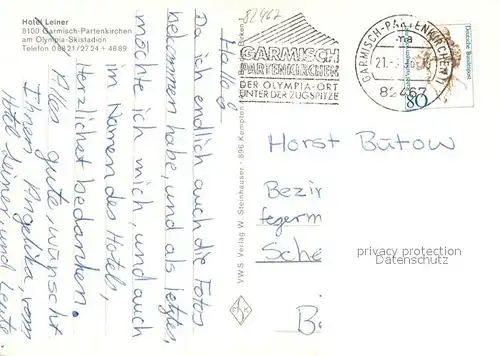 Hotel Leiner
8100 Garmisch-Partenkirchen
am Olympia-Skistadion
Telefon 08821/2724+4689
82467
Hallo
Da ich endlich auch die Fotos
bekommen habe, und als letztes,
möchte ich mich, und auch
im Namen des Hotels,
Herzlichst bedanken.
Alles gute, wünscht
Ihnen Angelika, vom
Hotel Leiner, und Leute.
VWS Verlag W. Steinhauser - 896 Kempten
GARMISCH
PARTENKIRCHEN
DER OLYMPIA-ORT
UNTER DER ZUGSPITZE
GARMISCH-PARTENKIRCHEN 1
ma
82467
Deutsche Bundespost
80
Horst Bütow
Bezir
fegerm
Sche
B
privacy protection
Datenschutz